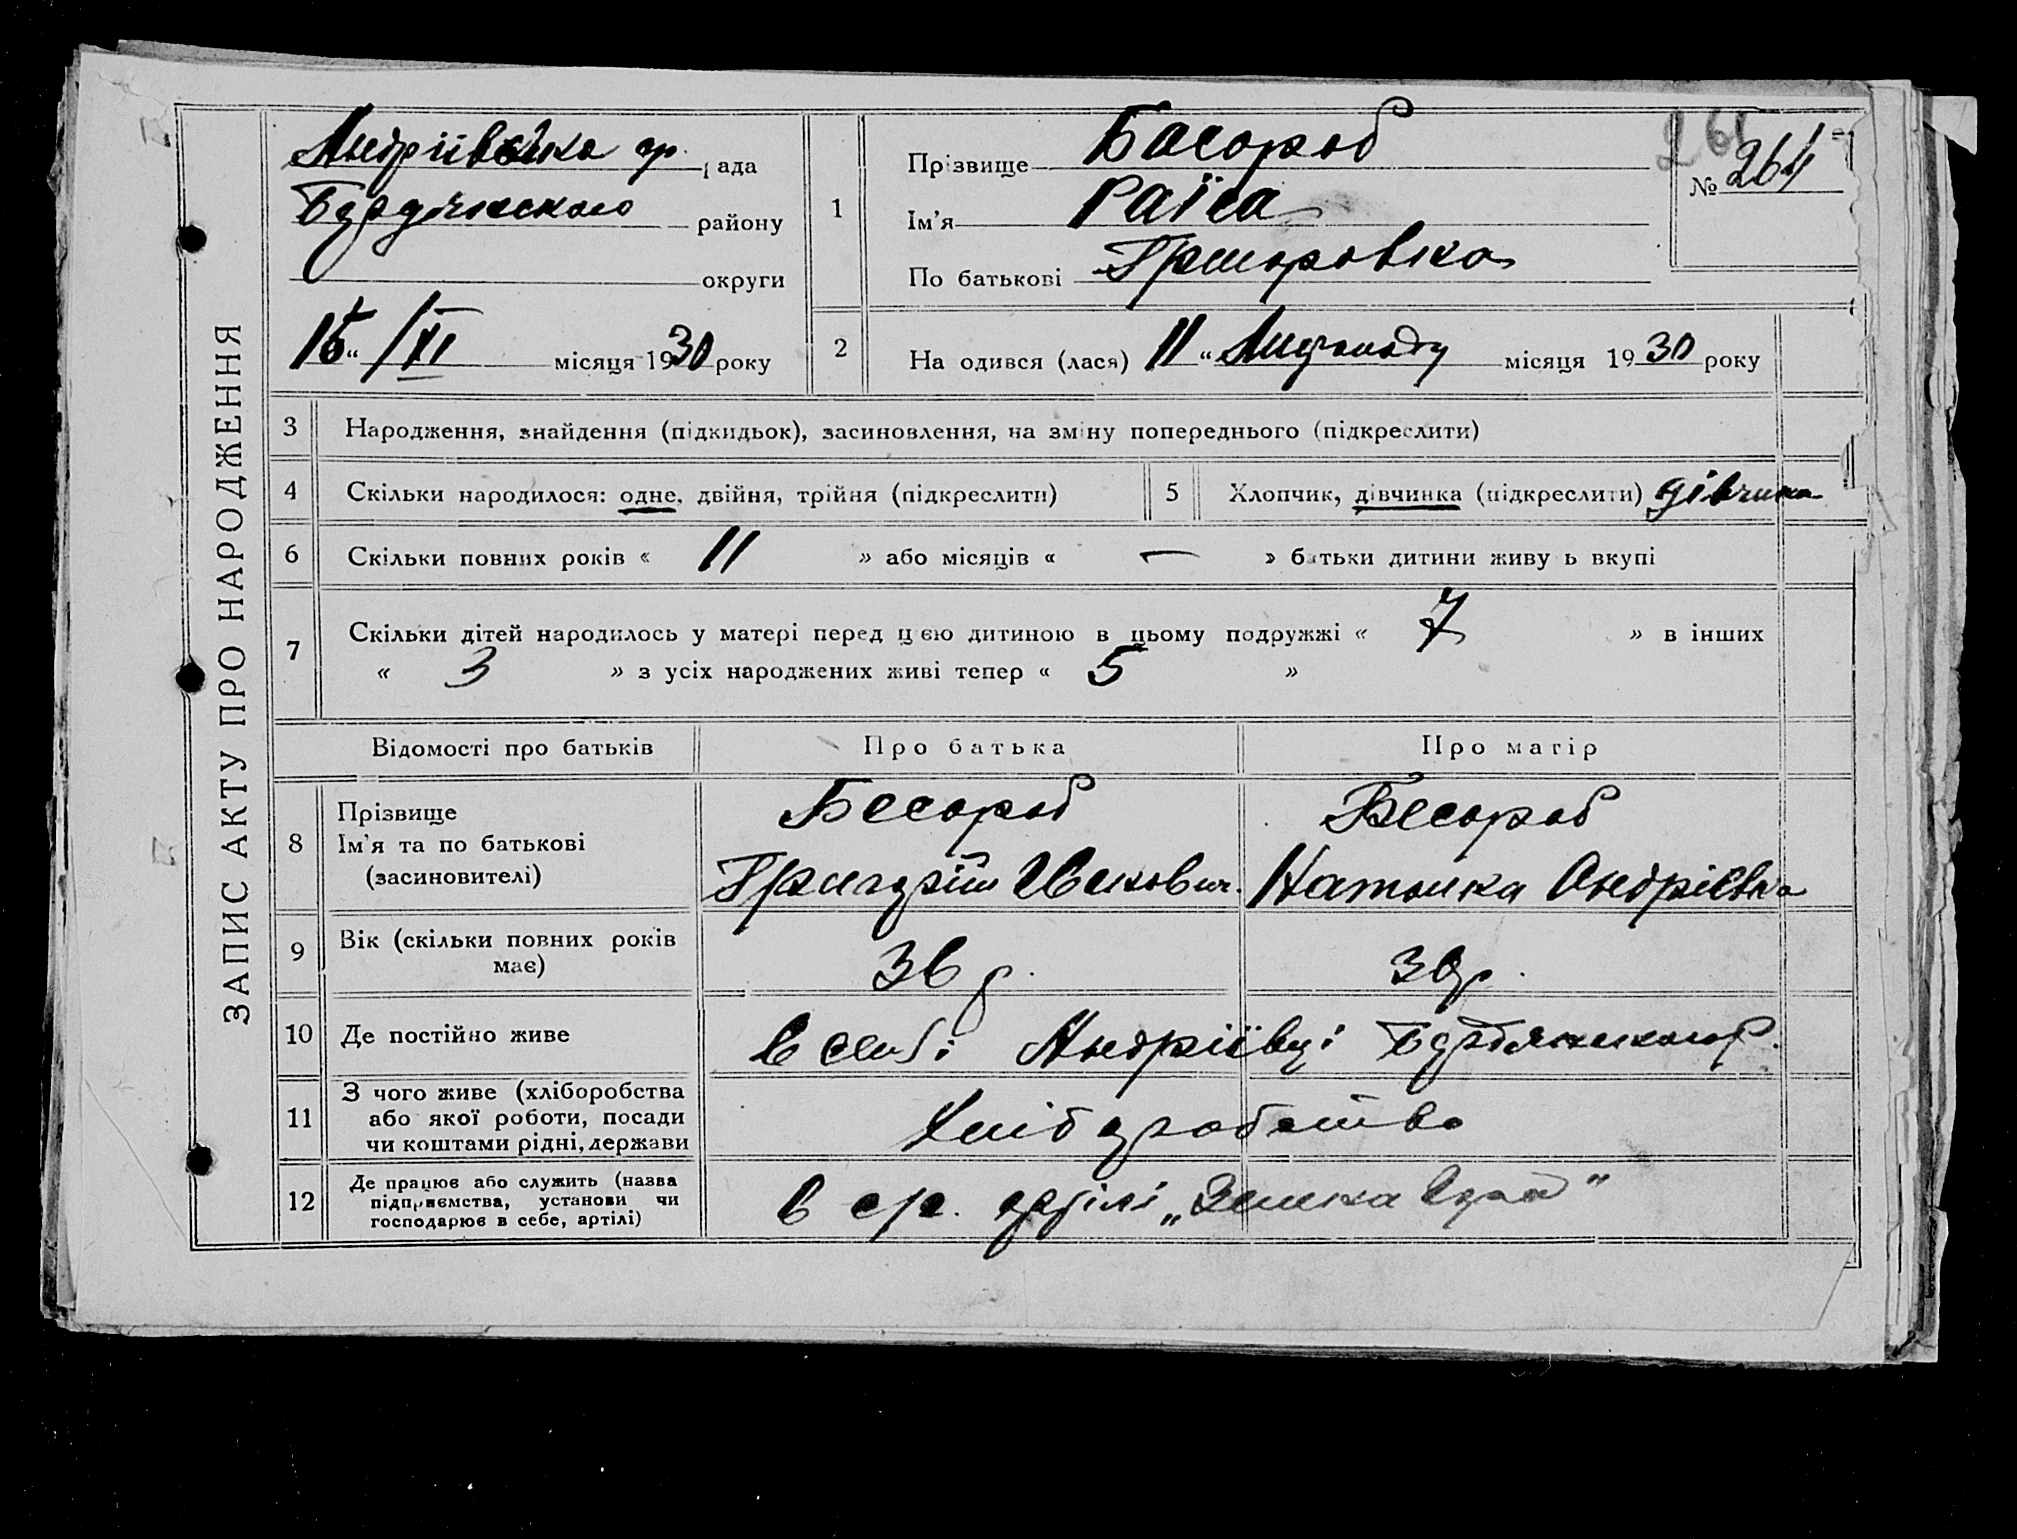 ЗАПИС АКТУ ПРО НАРОДЖЕННЯ
Андріївська ср. рада
Бердянского району
округи
15 “ /XI місяця 1930 року
1
Прізвище Басараб
Ім'я Раїса
По батькові Григоровна
261
№ 264
2
На одився (лася) 11 “ Листопаду місяця 1930 року
3 Народження, знайдення (підкидьок), засиновлення, на зміну попереднього (підкреслити)
4 Скільки народилося: одне, двійня, трійня (підкреслити)
5 Хлопчик, дівчинка (підкреслити) дівчина
6 Скільки повних років « 11 » або місяців « — » батьки дитини живу ь вкупі
7 Скільки дітей народилось у матері перед цією дитиною в цьому подружжі « 7 » в інших
« 3 » з усіх народжених живі тепер « 5 »
Відомості про батьків Про батька Про матір
8 Прізвище
Ім'я та по батькові
(засиновителі)
Бесараб
Григорій Іванович.
Бесараб
Наталка Андрієвна
9 Вік (скільки повних років має)
36 р. 39р.
10 Де постійно живе
в селі Андріївці Бердянського р.
11 З чого живе (хліборобства
або якої роботи, посади
чи коштами рідні, держави
Хліборобство
12 Де працює або служить (назва
підприємства, установи чи
господарює в себе, артілі)
в ср. артілі